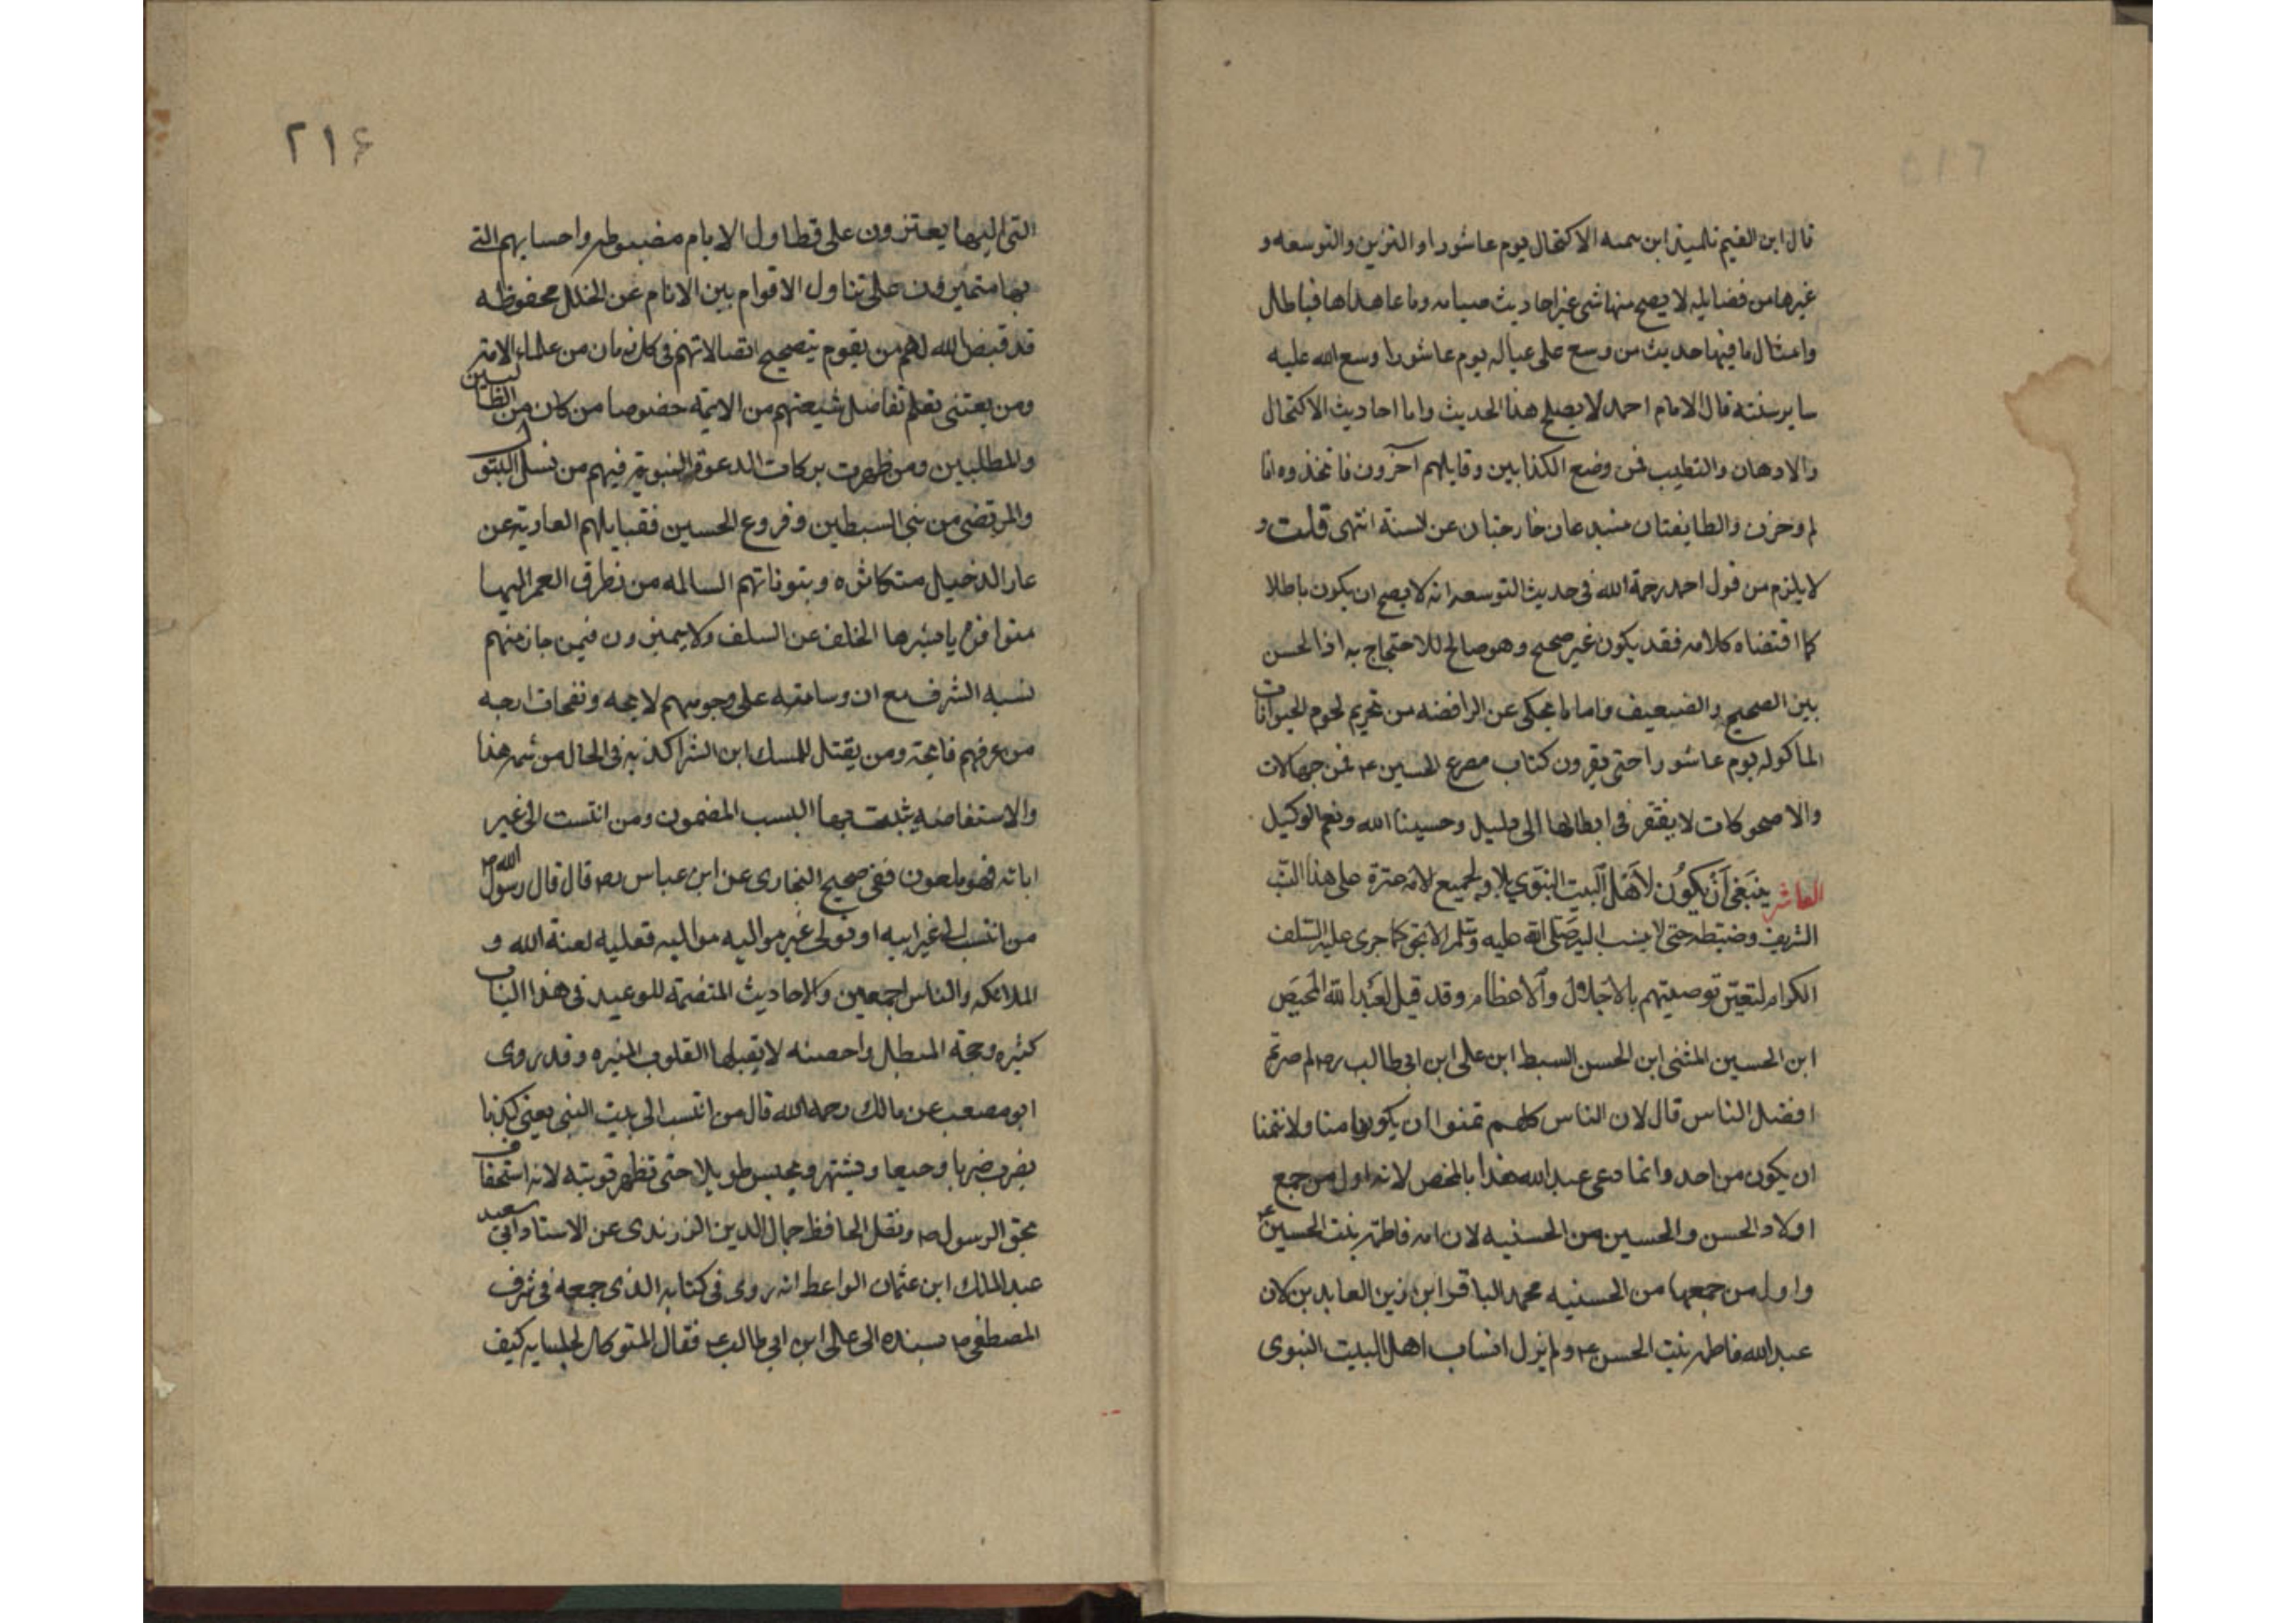 قال ابن القيم تلميذ ابن سمه الاكتحال يوم عاشورا والتزين والتوسعه و
غيرها من فضايله لا يصح منها شى غير احاديث صيامه وما عاهداها فباطل
وامثال ما فيها حديث من وسع على عياله يوم عاشورا وسع الله عليه
ساير سنته قال الامام احمد لا يصلح هذا الحديث واما احاديث الاكتحال
والادهان والتطيب فمن وضع الكذابين وقابلهم آخرون فاتخذوه اثا
لم وحزن والطايفتان مبتدعان خارجتان عن لسنة انتهى قلت و
لا يلزم من قول احمد رحمة الله فى حديث التوسعه انه لا يصح ان يكون باطلا
كما اقتضاه كلامه فقد يكون غير صحيح وهو صالح للاحتجاج به اذا الحسن
بين الصحيح والضعيف واما ما يحكى عن الرافضه من تحريم لحوم الحيوانات
الماكوله يوم عاشورا حتى يقرون كتاب مصرع الحسين ع فمن جهالات
والاضحوكات لا يفتقر فى ابطالها الى دليل وحسبنا الله ونعم الوكيل
العاشر ينبغى أن يكون لأهل البيت النبوي بل وللجميع لانه غيرة على هذا النسب
الشريف وضبطه حتى لا ينسب اليه صلى الله عليه وسلم الا بحق كما جرى عليه السلف
الكرام لتعين توصيتهم بالاجلال والاعظام وقد قيل لعبد الله المحض
ابن الحسين المثنى ابن الحسن السبط ابن على ابن ابى طالب رض لم صرتم
افضل الناس قال لان الناس كلهم تمنوا ان يكونوا منا ولا نتمنا
ان يكون من احد وانما دعى عبد الله هذا بالمحض لانه اول من جمع
اولاد الحسن والحسين من الحسنيه لان امه فاطمه بنت الحسين ع
واول من جمعها من الحسنيه محمد الباقر ابن زين العابدين لان
عبد الله فاطمه بنت الحسن ع ولم يزل انساب اهل البيت النبوى
٢١۶
التى اليها يعتزون على تطاول الايام مضبوطه واحسابهم التى
بها متميزون على تناول الاقوام بين الانام عن الخلل محفوظه
قد قيض الله لهم من يقوم بتصحيح اتصالاتهم فى كل زمان من علماء الامة
ومن يعتنى بعلم تفاصل شيعتهم من الايمه خصوصا من كان من الطالبين
والمطلبين ومن ظهرت بركات الدعوة النبوية فيهم من نسل البتول
والمرتضى من بنى السبطين وفروع الحسين فقبايلهم العارية عن
عار الدخيل متكاثره وبتوناتهم السالمه من تطرق العمر اليها
متوافره ياثرها الخلف عن السلف ولا يمترون فيمن حاز منهم
نسبه الشرف مع ان وسامته على وجوههم لايحه ونفحات ارجه
من عرفهم فايحة ومن يقتل للمسك ابن الشرا كذبه فى الحال من شم هذا
والاستفاضه يثبت بها النسب المضمون ومن انتسب الى غير
ابائه فهو ملعون ففى صحيح البخارى عن ابن عباس رض قال قال رسول الله ص
من انتسب الى غير ابيه او تولى غير مواليه مواليه فعليه لعنة الله و
الملائكه والناس اجمعين والاحاديث المتضمنة للوعيد فى هذا الباب
كثيره وحجة المبطل داحضه لا يقبلها القلوب المنيره وقد روى
ابو مصعب عن مالك رحمه الله قال من انتسب الى بيت النبى يعنى كذبا
يضرب ضربا وجيعا ويشتهر ويحبس طويلا حتى تظهر توبته لانه استخفاف
بحق الرسول ص ونقل الحافظ جمال الدين الزرندى عن الاستاد ابى سعيد
عبد الملك ابن عثمان الواعظ انه روى فى كتابه الذى جمعه فى شرف
المصطفى ص بسنده الى على ابن ابى طالب ع فقال المتوكل لجلسايه كيف